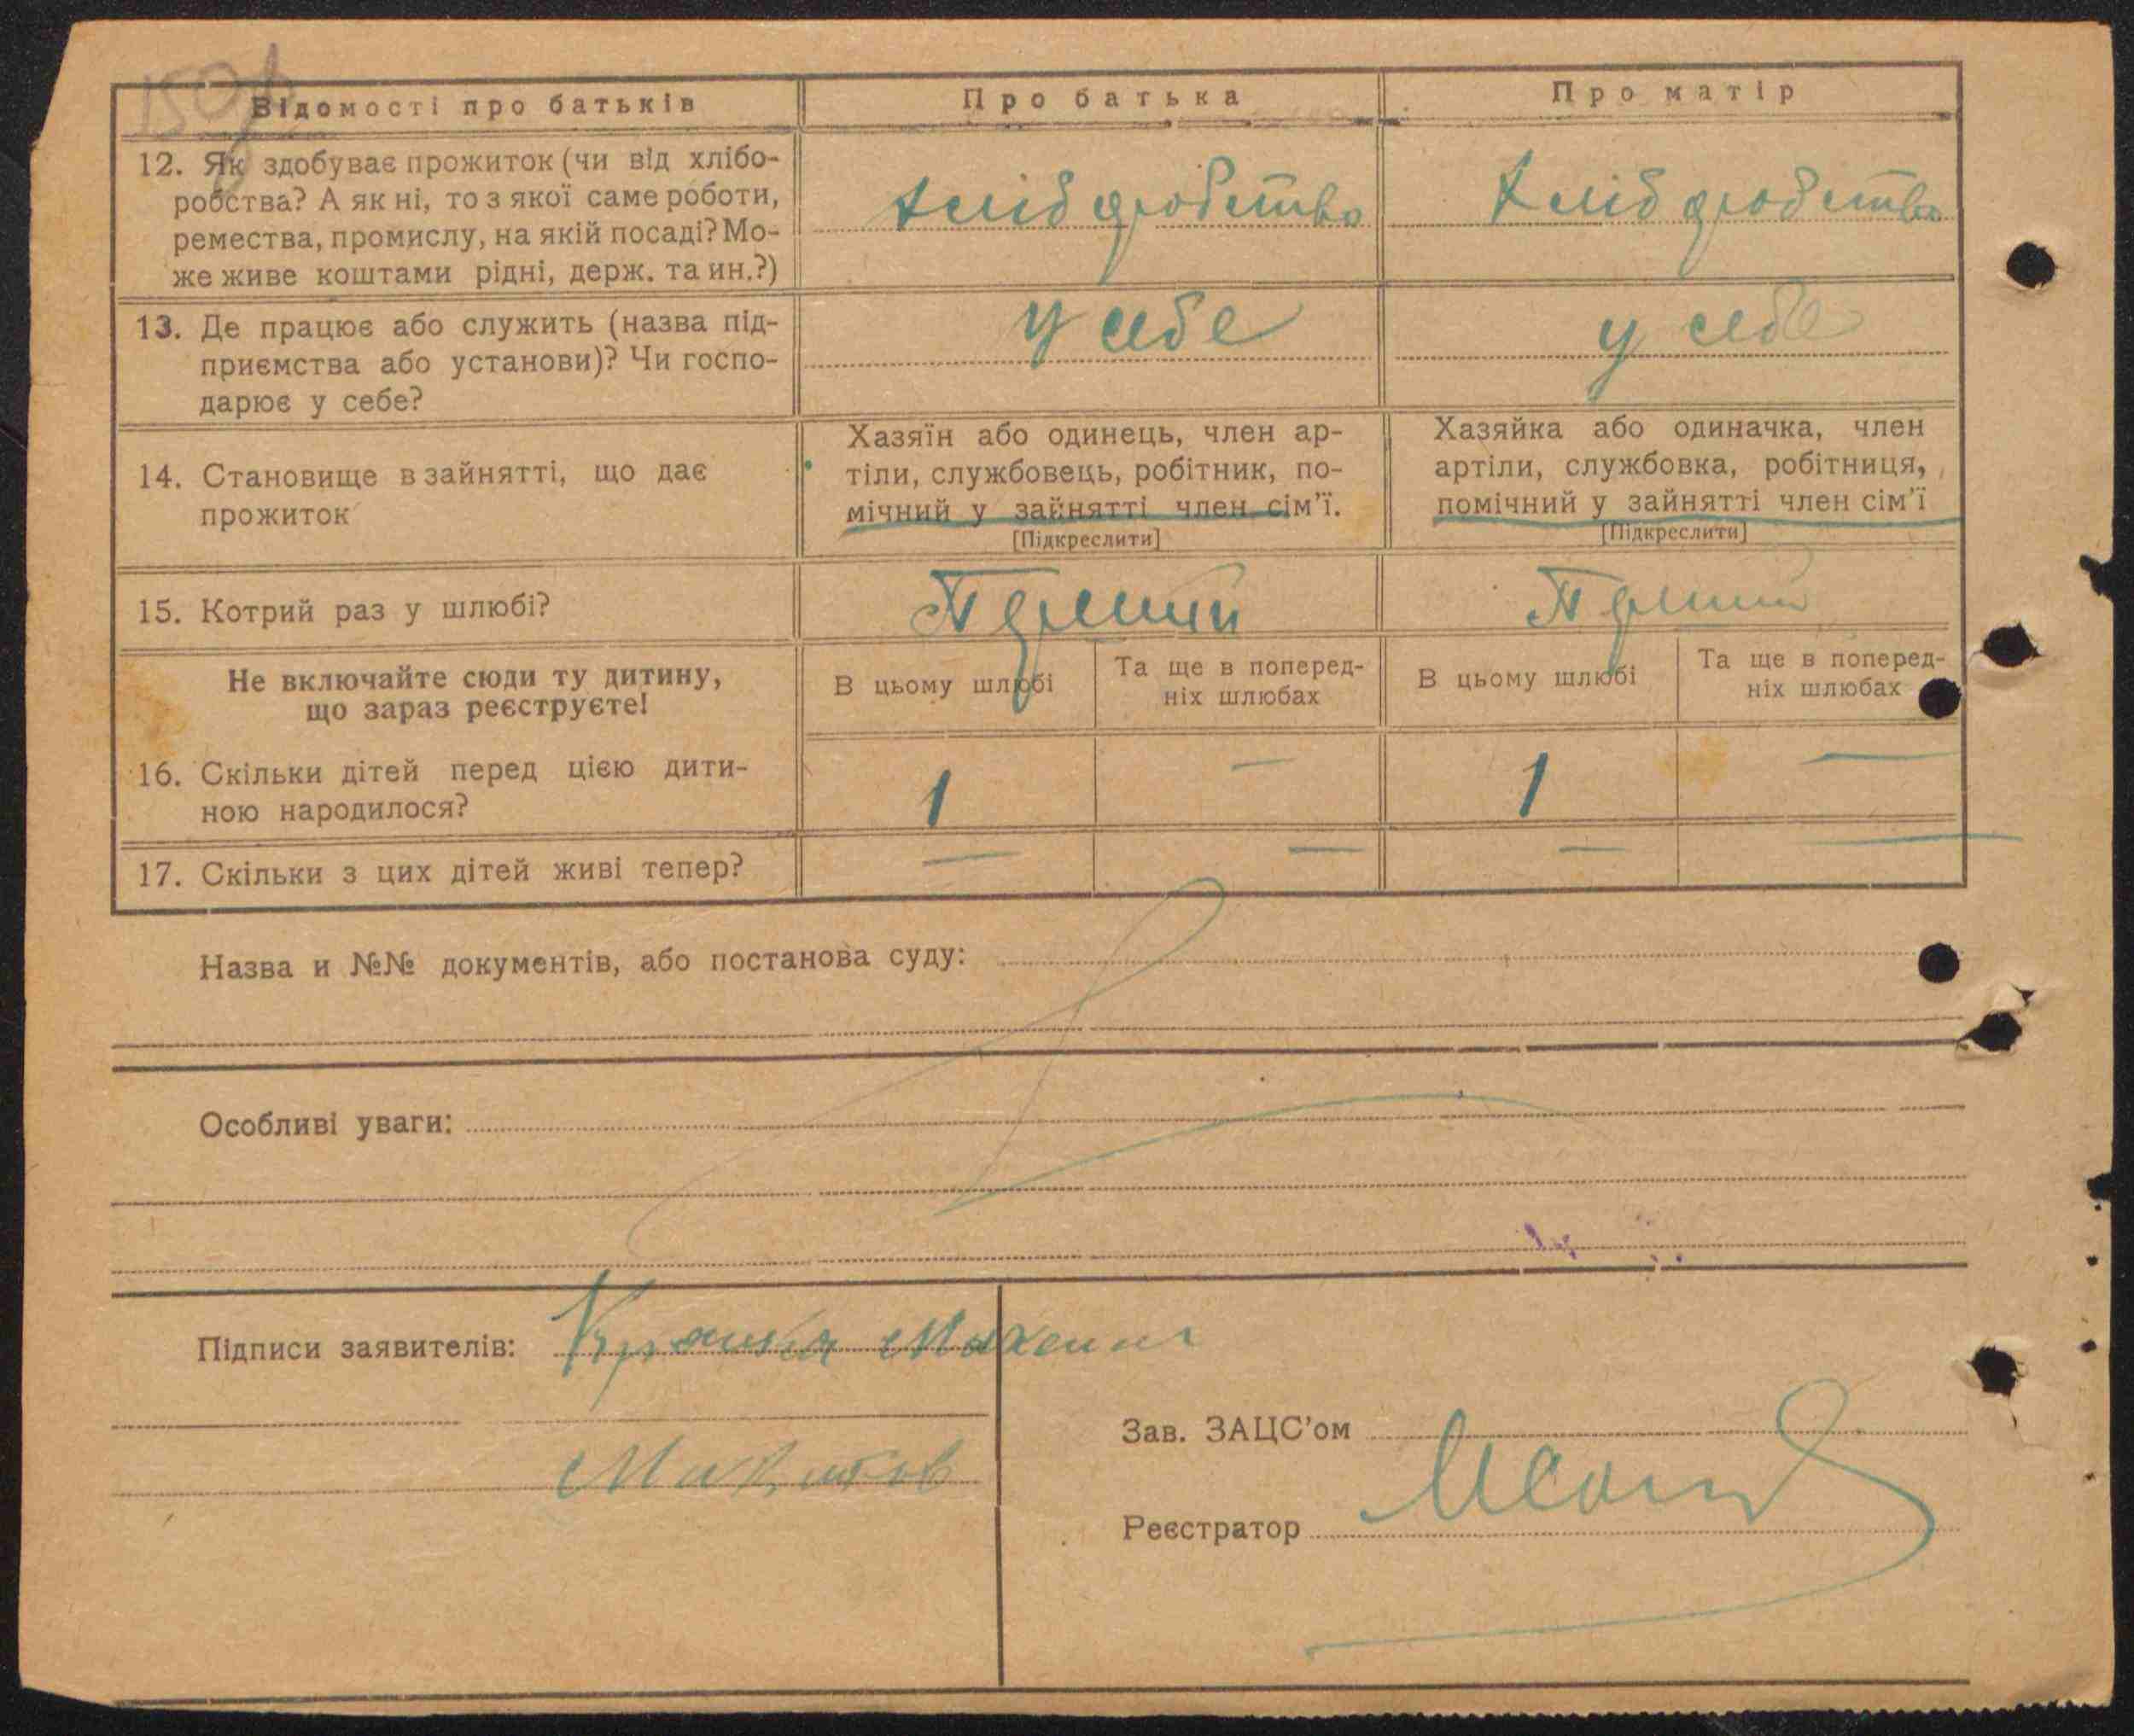 150
Відомості про батьків
Про батька
Про матір
12. Як здобуває прожиток (чи від хлібо-
робства? А як ні, то з якої саме роботи,
ремества, промислу, на якій посаді? Мо-
же живе коштами рідні, держ. та ин.?)
хлібробство
хлібробство
13. Де працює або служить (назва під-
приємства або установи)? Чи госпо-
дарює у себе?
у себе
у себе
14. Становище в зайнятті, що дає
прожиток
Хазяїн або одинець, член ар-
тіли, службовець, робітник, по-
мічний у зайнятті член сім'ї.
[Підкреслити]
Хазяйка або одиначка, член
артіли, службовка, робітниця,
помічний у зайнятті член сім'ї
[Підкреслити]
15. Котрий раз у шлюбі?
Не включайте сюди ту дитину,
що зараз реєструєте!
В цьому шлюбі
Та ще в поперед-
ніх шлюбах
В цьому шлюбі
Та ще в поперед-
ніх шлюбах
16. Скільки дітей перед цією дити-
ною народилося?
1
—
1
—
17. Скільки з цих дітей живі тепер?
—
—
—
—
Назва и №№ документів, або постанова суду:
Особливі уваги:
Підписи заявителів:
Зав. ЗАЦС'ом
Реєстратор